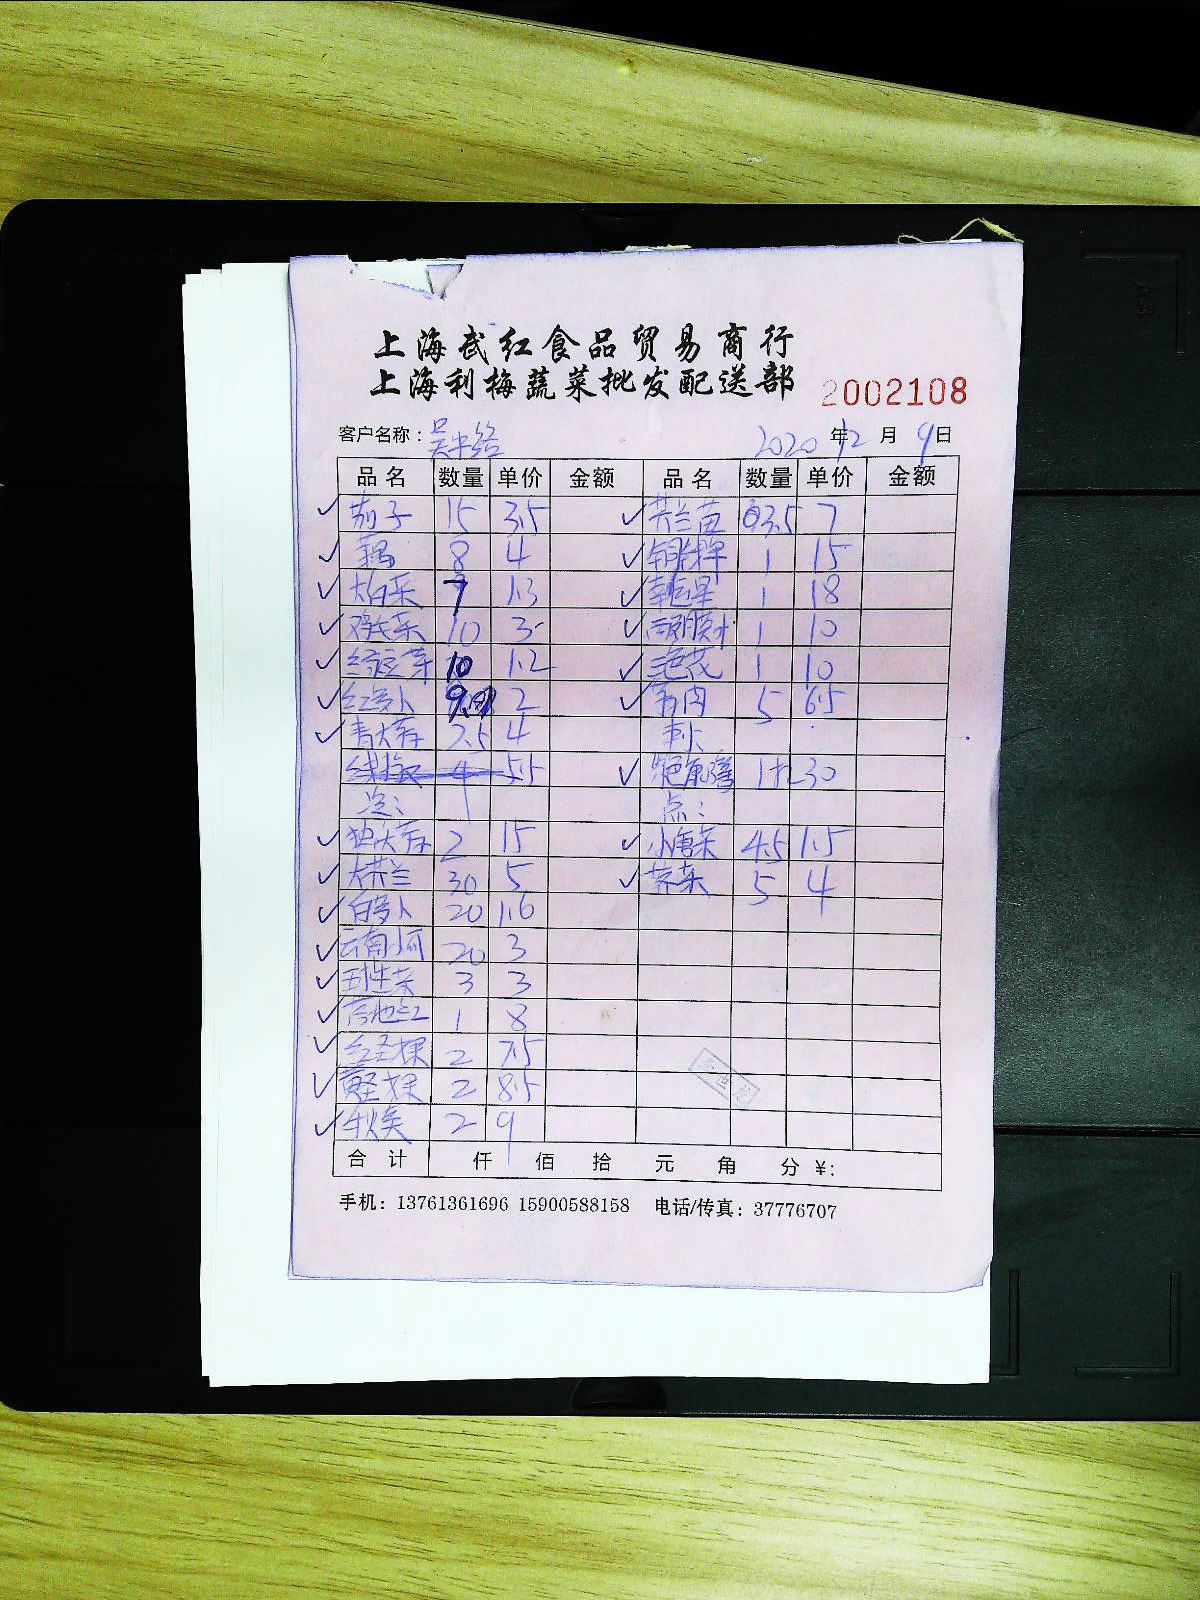 上海武红食品贸易商行
上海利梅蔬菜批发配送部
2002108
客户名称： 2020年12月9日
品名 数量 单价 金额 品名 数量 单价 金额
茄子 15 3.5 芥兰苗 3.5 7
藕 8 4 1 15
大白菜 7 1.3 1 18
鸡毛菜 10 3 1 10
绿豆芽 10 1.2 三色花 1 10
红萝卜 2 5 6.5
青大蒜 2.5 4
4 5.5 30
冷： 点：
独头蒜 2 15 小唐菜 4.5 1.5
大芥兰 30 5 荠菜 5 4
白萝卜 20 1.6
云南小瓜 20 3
3 3
1 8
红圣果 2 7.5
黄圣果 2 8.5
秋葵 2 9
合计 仟 佰 拾 元 角 分 ¥:
手机：13761361696 15900588158 电话/传真：37776707